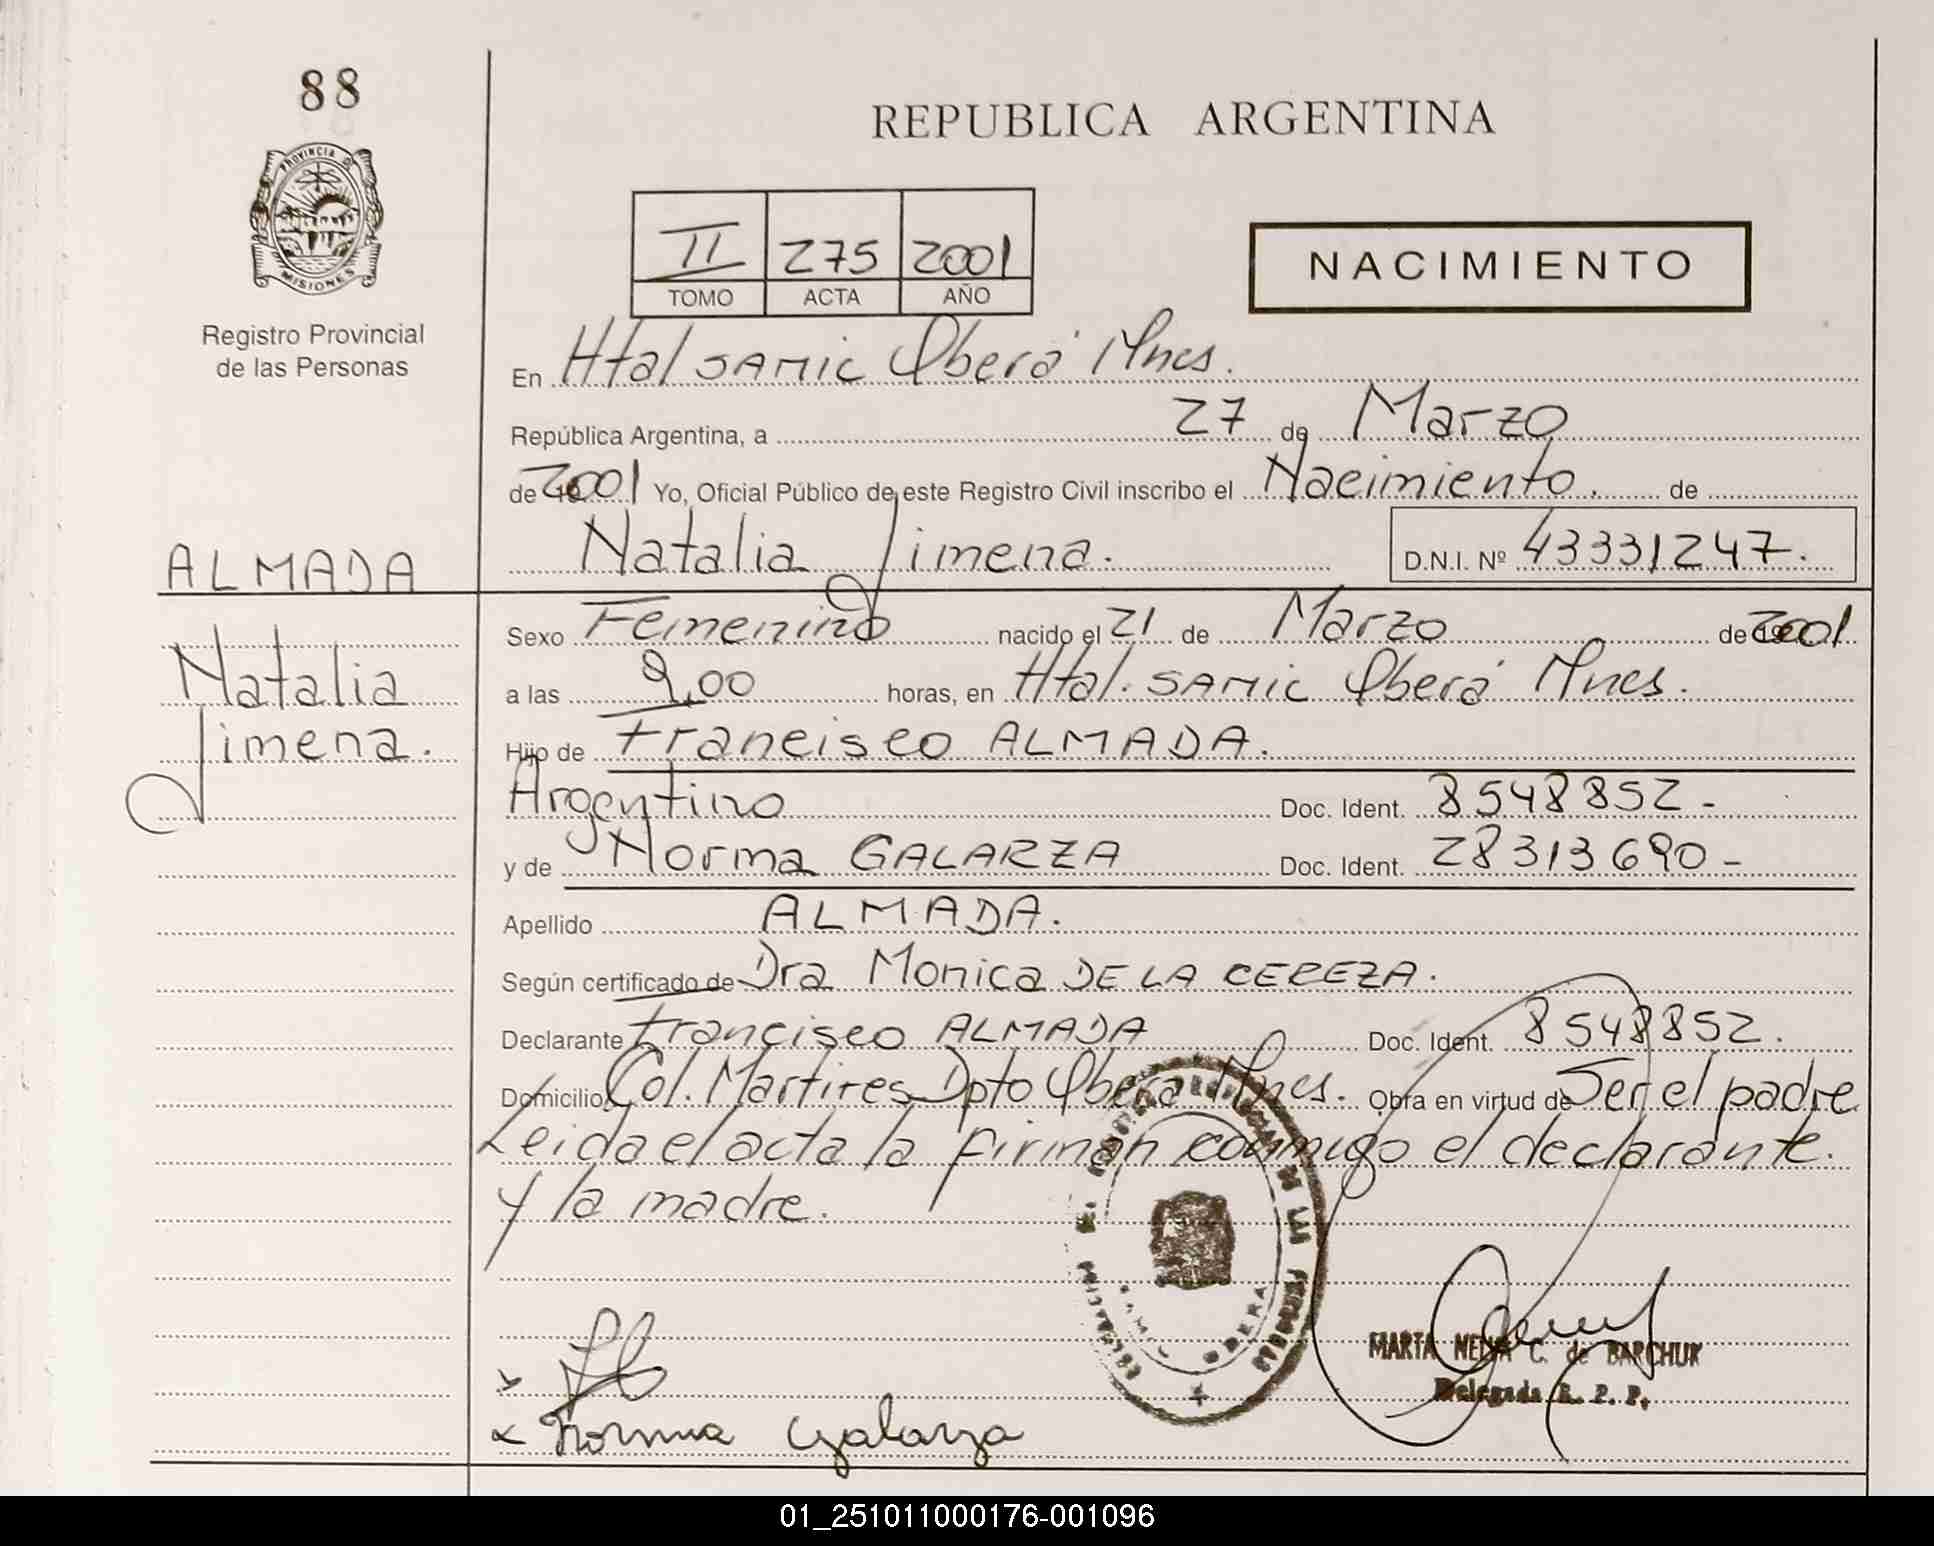 88
REPUBLICA ARGENTINA
PROVINCIA DE
MISIONES
Registro Provincial
de las Personas
II 275 2001
TOMO ACTA AÑO
NACIMIENTO
En Htal SAMIC Oberá Mnes.
República Argentina, a 27 de Marzo
de 2001 Yo, Oficial Público de este Registro Civil inscribo el Nacimiento. de
Natalia Jimena. D.N.I. Nº 43331247.
ALMADA
Natalia
Jimena.
Sexo Femenino nacido el 21 de Marzo de 2001
a las 9,00 horas, en Htal. SAMIC Oberá Mnes.
Hijo de Francisco ALMADA.
Argentino Doc. Ident. 8548852-
y de Norma GALARZA Doc. Ident. 28313690-
Apellido ALMADA.
Según certificado de Dra Monica DE LA CEREZA.
Declarante Francisco ALMADA Doc. Ident. 8548852.
Domicilio Col. Martires Dpto Oberá Mnes. Obra en virtud de Ser el padre
Leida el acta la firman conmigo el declarante.
y la madre.
DE LAS PERSONAS
OBERA
MARTA C. de BARCHUK
Delegada R. P. P.
x
x Norma Galarza
01_251011000176-001096